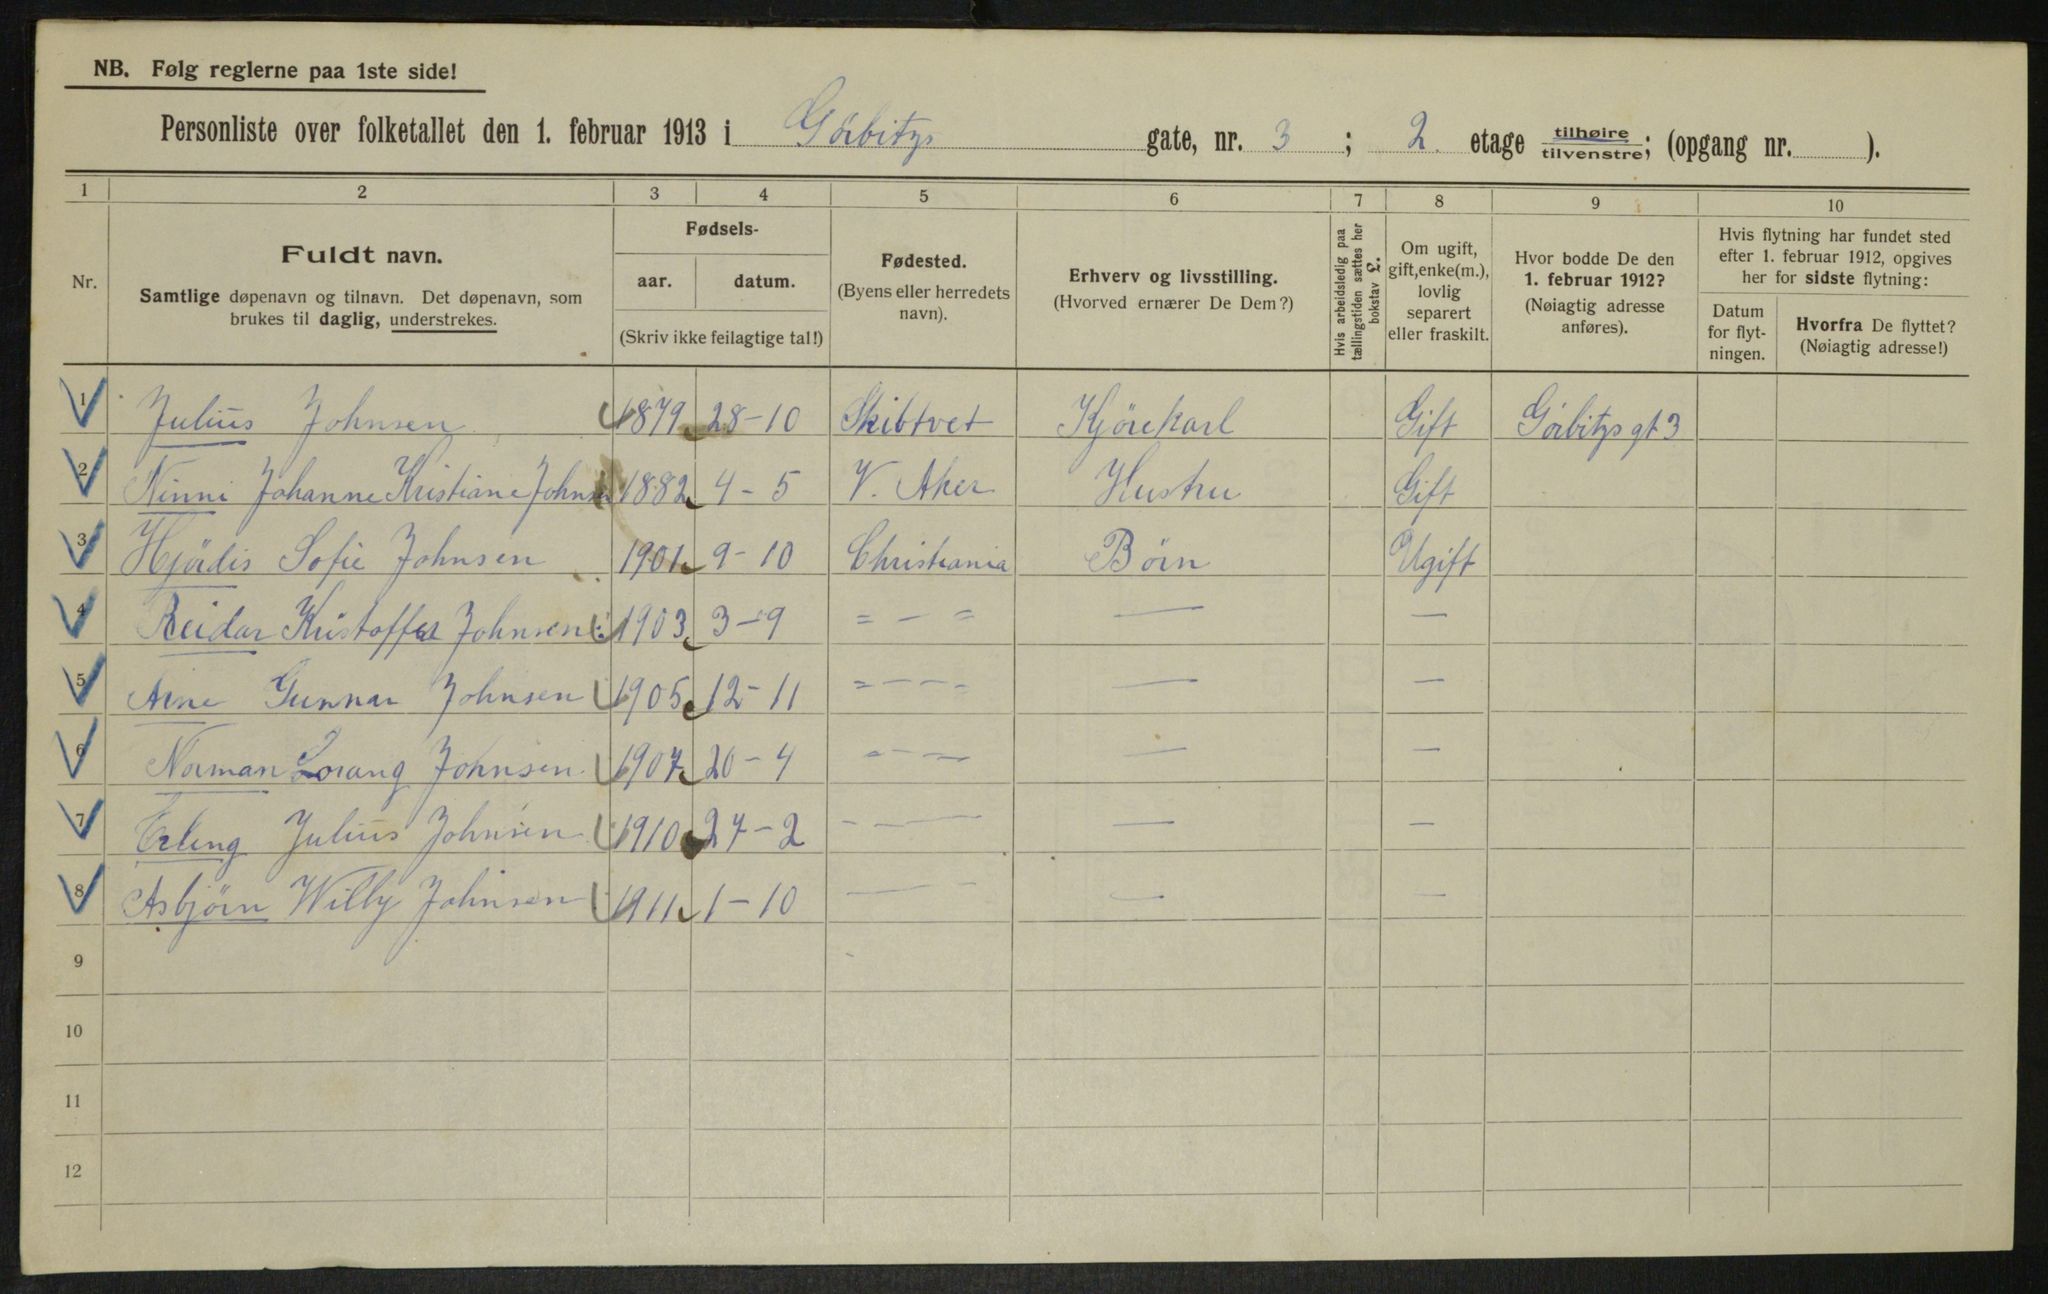 NB. Følg reglerne paa 1ste side!
Personliste over folketallet den 1. februar 1913 i Görbitzs gate, nr. 3 ; 2 etage tilhøire tilvenstre; (opgang nr. ).
1 2 3 4 5 6 7 8 9 10
Nr.
Fuldt navn.
Samtlige døpenavn og tilnavn. Det døpenavn, som
brukes til daglig, understrekes.
Fødsels-
aar. datum.
(Skriv ikke feilagtige tal!)
Fødested.
(Byens eller herredets
navn).
Erhverv og livsstilling.
(Hvorved ernærer De Dem?)
Hvis arbeidsledig paa
tællingstiden sættes her
bokstav L.
Om ugift,
gift, enke(m.),
lovlig
separert
eller fraskilt.
Hvor bodde De den
1. februar 1912?
(Nøiagtig adresse
anføres).
Hvis flytning har fundet sted
efter 1. februar 1912, opgives
her for sidste flytning:
Datum
for flyt-
ningen.
Hvorfra De flyttet?
(Nøiagtig adresse!)
1 Julius Johnsen 1879 28-10 Skibtvet Kjörekarl Gift Görbitzs gt 3
2 Ninni Johanne Kristiane Johnsen 1882 4-5 V. Aker Hustru Gift
3 Hjördis Sofie Johnsen 1901 9-10 Christiania Börn Ugift
4 Reidar Kristoffer Johnsen 1903 3-9 = - = — —
5 Arne Gunnar Johnsen 1905 12-11 = - - - — —
6 Norman Lorang Johnsen 1907 20-4 - - - — —
7 Erling Julius Johnsen 1910 27-2 - - - — —
8 Asbjörn Willy Johnsen 1911 1-10 - - - — —
9
10
11
12